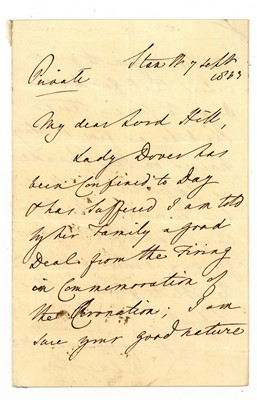 Private
7 Sept
My dear Lord Hill,
Lady Dover has
been Confined to Day
& has suffered I am told
by her Family a good
Deal from the Firing
in Commemoration of
the Coronation; I am
sure your good nature